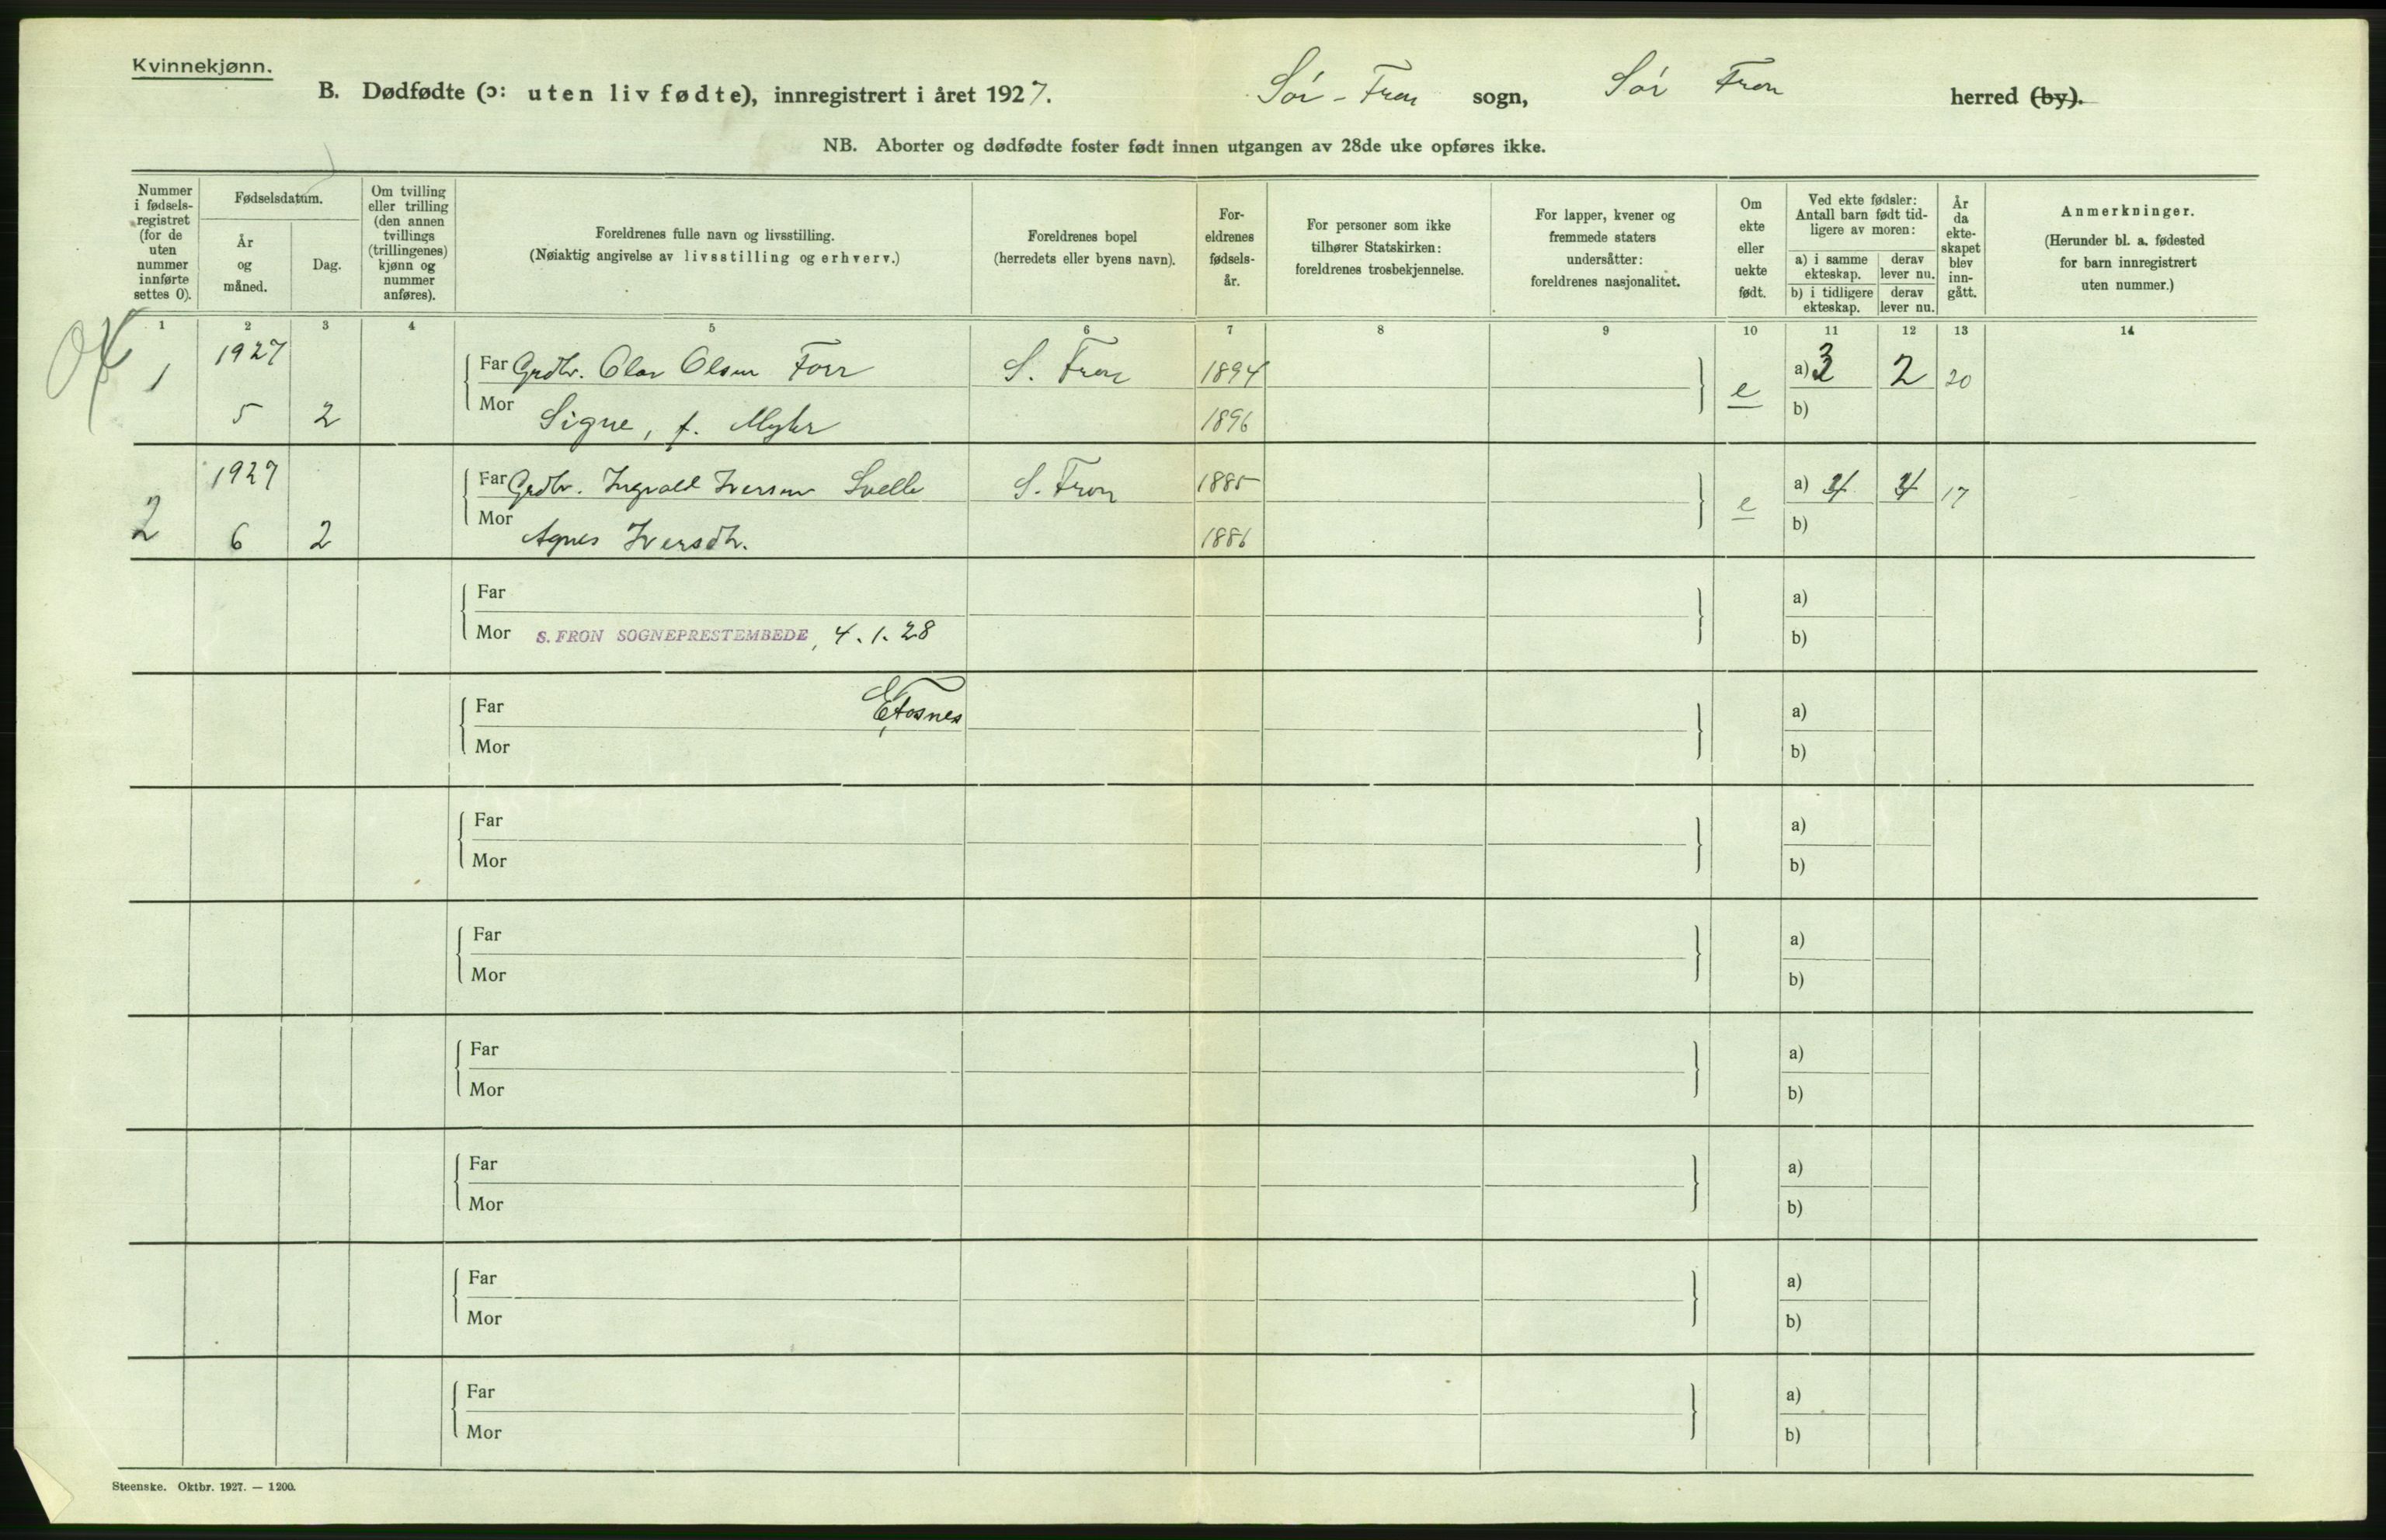 Kvinnekjønn.
B. Dødfødte (ɔ: uten liv fødte), innregistrert i året 1927. Sór - Fron sogn, Sór Fron herred (by).
NB. Aborter og dødfødte foster født innen utgangen av 28de uke opføres ikke.
Nummer
i fødsels-
registret
(for de
uten
nummer
innførte
settes 0).
Fødselsdatum.
År
og
måned.
Dag.
Om tvilling
eller trilling
(den annen
tvillings
(trillingenes)
kjønn og
nummer
anføres).
Foreldrenes fulle navn og livsstilling.
(Nøiaktig angivelse av livsstilling og erhverv.)
Foreldrenes bopel
(herredets eller byens navn).
For-
eldrenes
fødsels-
år.
For personer som ikke
tilhører Statskirken:
foreldrenes trosbekjennelse.
For lapper, kvener og
fremmede staters
undersåtter:
foreldrenes nasjonalitet.
Om
ekte
eller
uekte
født.
Ved ekte fødsler:
Antall barn født tid-
ligere av moren:
a) i samme
ekteskap.
derav
lever nu.
b) i tidligere
ekteskap.
derav
lever nu.
År
da
ekte-
skapet
blev
inn-
gått.
Anmerkninger.
(Herunder bl. a. fødested
for barn innregistrert
uten nummer.)
1 2 3 4 5 6 7 8 9 10 11 12 13 14
OK
1 1927 Far Grdbr. Olav Olsen Forr S. Fron 1894 e a) 3 2 20
5 2 Mor Signe, f. Myhr 1896 b)
2 1927 Far Grdbr. Ingvald Iversen Lvelle S. Fron 1885 e a) 4 4 17
6 2 Mor Agnes Iversdtr. 1886 b)
Far a)
Mor S. FRON SOGNEPRESTEMBEDE, 4.1.28 b)
Far a)
Mor b)
Far a)
Mor b)
Far a)
Mor b)
Far a)
Mor b)
Far a)
Mor b)
Far a)
Mor b)
Far a)
Mor b)
Steenske. Oktbr. 1927. — 1200.